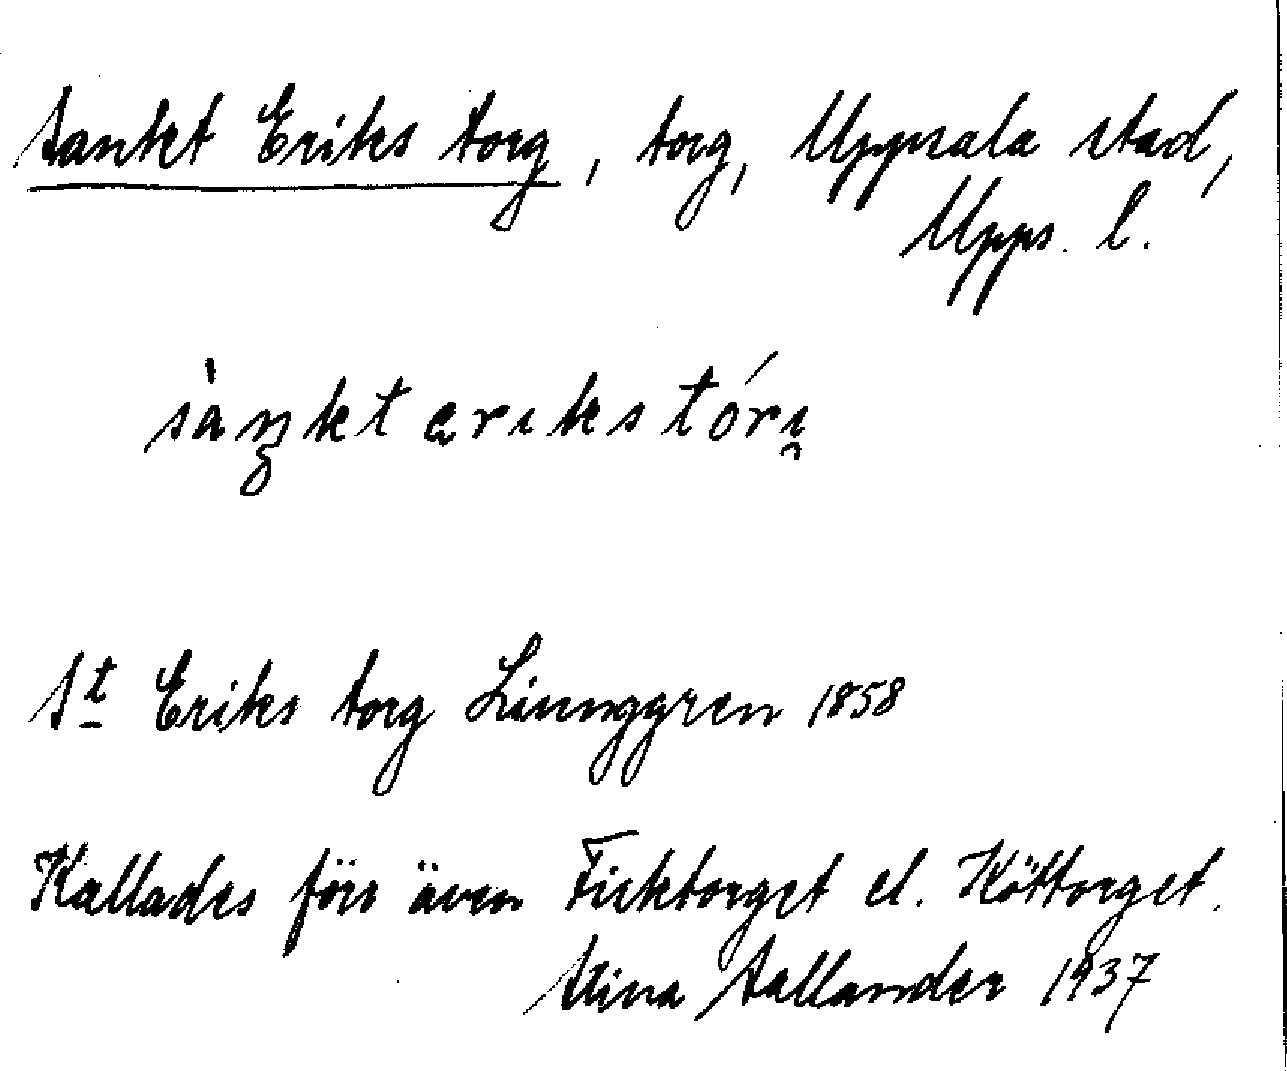 Sankt Eriks torg, torg, Uppsala stad,
Upps. l.
sàŋkt eriks tórı̯
St Eriks torg Linnggren 1858
Kallades förr även Fisktorget el. Köttorget.
Stina Sallander 1937